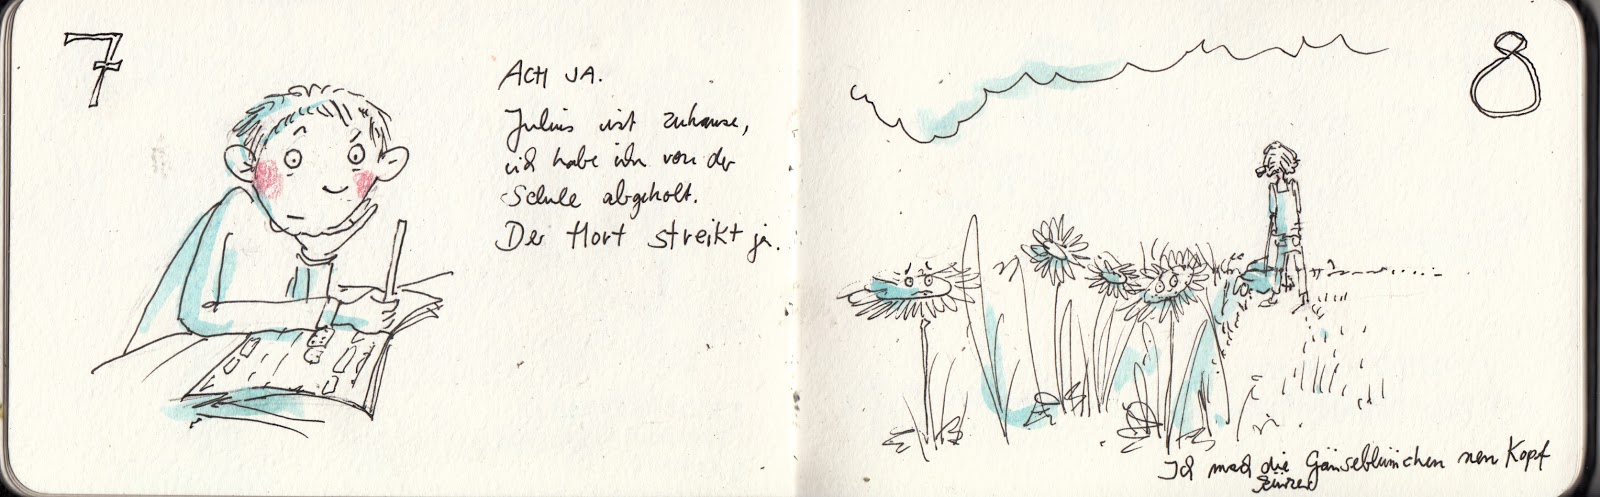 7
ACH JA.
Julius ist zuhause,
ich habe ihn von der
Schule abgeholt.
Der Hort streikt ja.
8
Ich mach die Gänseblümchen nen Kopf
kürzer